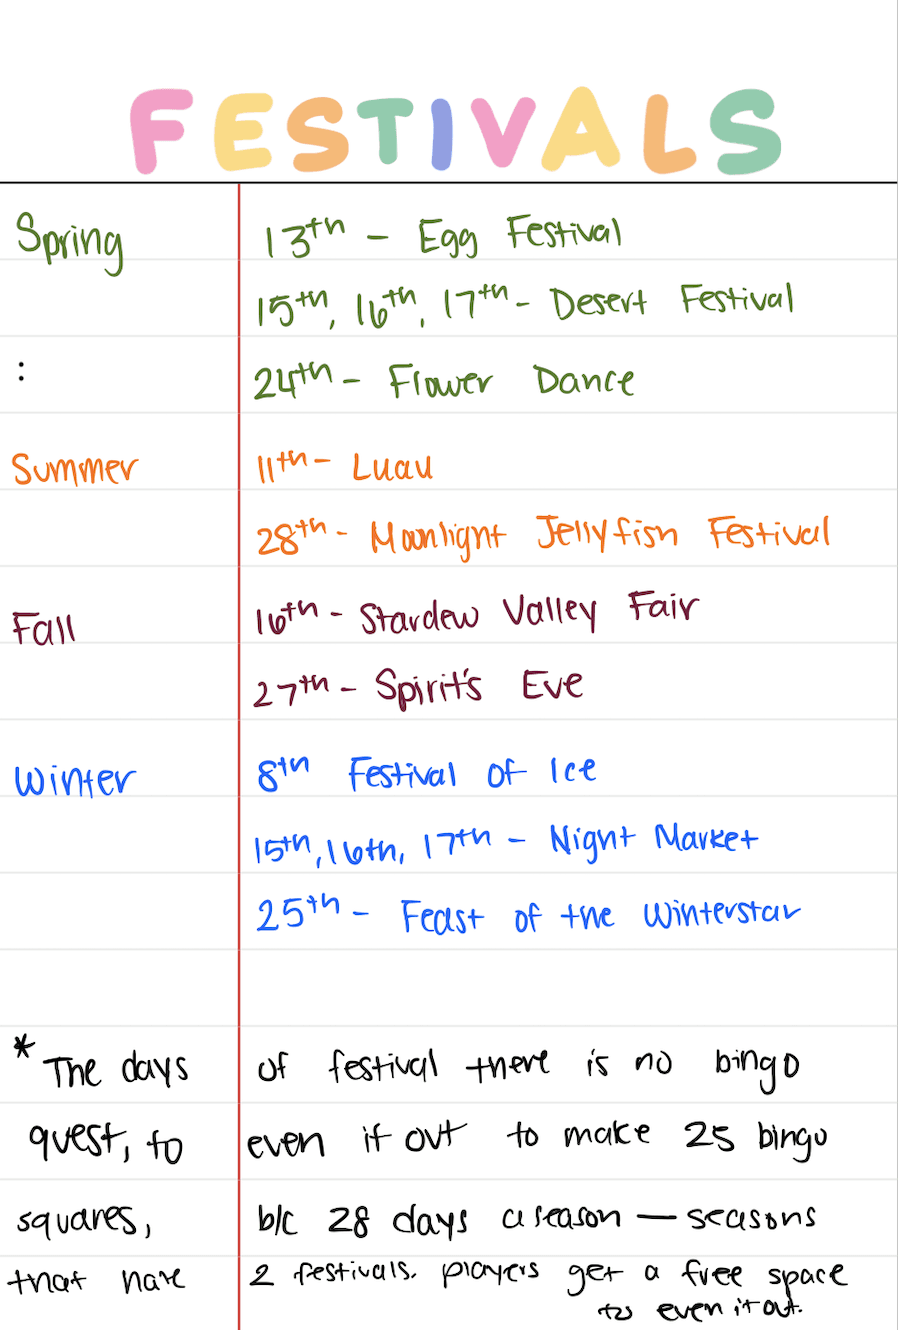 FESTIVALS
Spring 13th - Egg Festival
15th, 16th, 17th - Desert Festival
: 24th - Flower Dance
Summer 11th - Luau
28th - Moonlight Jellyfish Festival
Fall 16th - Stardew Valley Fair
27th - Spirit's Eve
Winter 8th Festival of Ice
15th, 16th, 17th - Night Market
25th - Feast of the Winterstar
* The days of festival there is no bingo
quest, to even it out to make 25 bingo
squares, b/c 28 days a season — seasons
that have 2 festivals. players get a free space
to even it out.